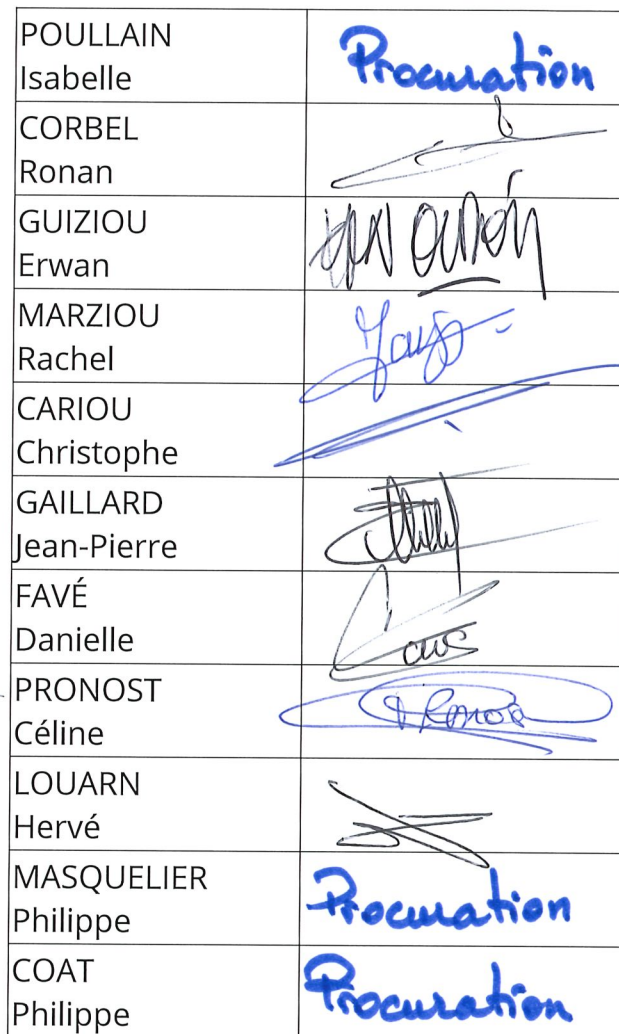 POULLAIN
Isabelle
Procuration
CORBEL
Ronan
GUIZIOU
Erwan
MARZIOU
Rachel
CARIOU
Christophe
GAILLARD
Jean-Pierre
FAVÉ
Danielle
PRONOST
Céline
LOUARN
Hervé
MASQUELIER
Philippe
Procuration
COAT
Philippe
Procuration